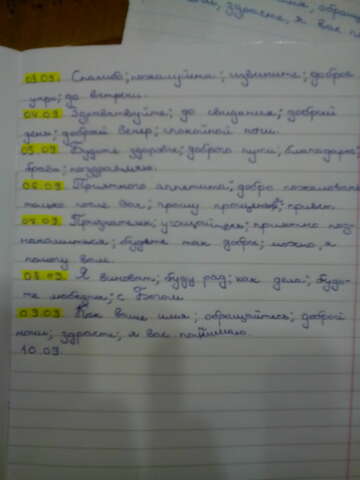 обра
здрасте, я вас п
03.09. Спасибо; пожалуйста; извините; доброе
утро; до встречи.
04.09. Здравствуйте; до свидания; добрый
день; добрый вечер; спокойной ночи.
05.09. Будьте здоровы; доброго пути; благодарю;
браво; поздравляю.
06.09. Приятного аппетита; добро пожаловать
только после Вас; прошу прощения; привет.
07.09. Признателен; угощайтесь; приятно поз-
накомиться; будьте так добры; можно, я
помогу вам.
08.09. Я виноват; буду рад; как дела; будь-
те любезны; с Богом
09.09. Как ваше имя; обращайтесь; доброй
ночи; здрасте; я вас понимаю.
10.09.